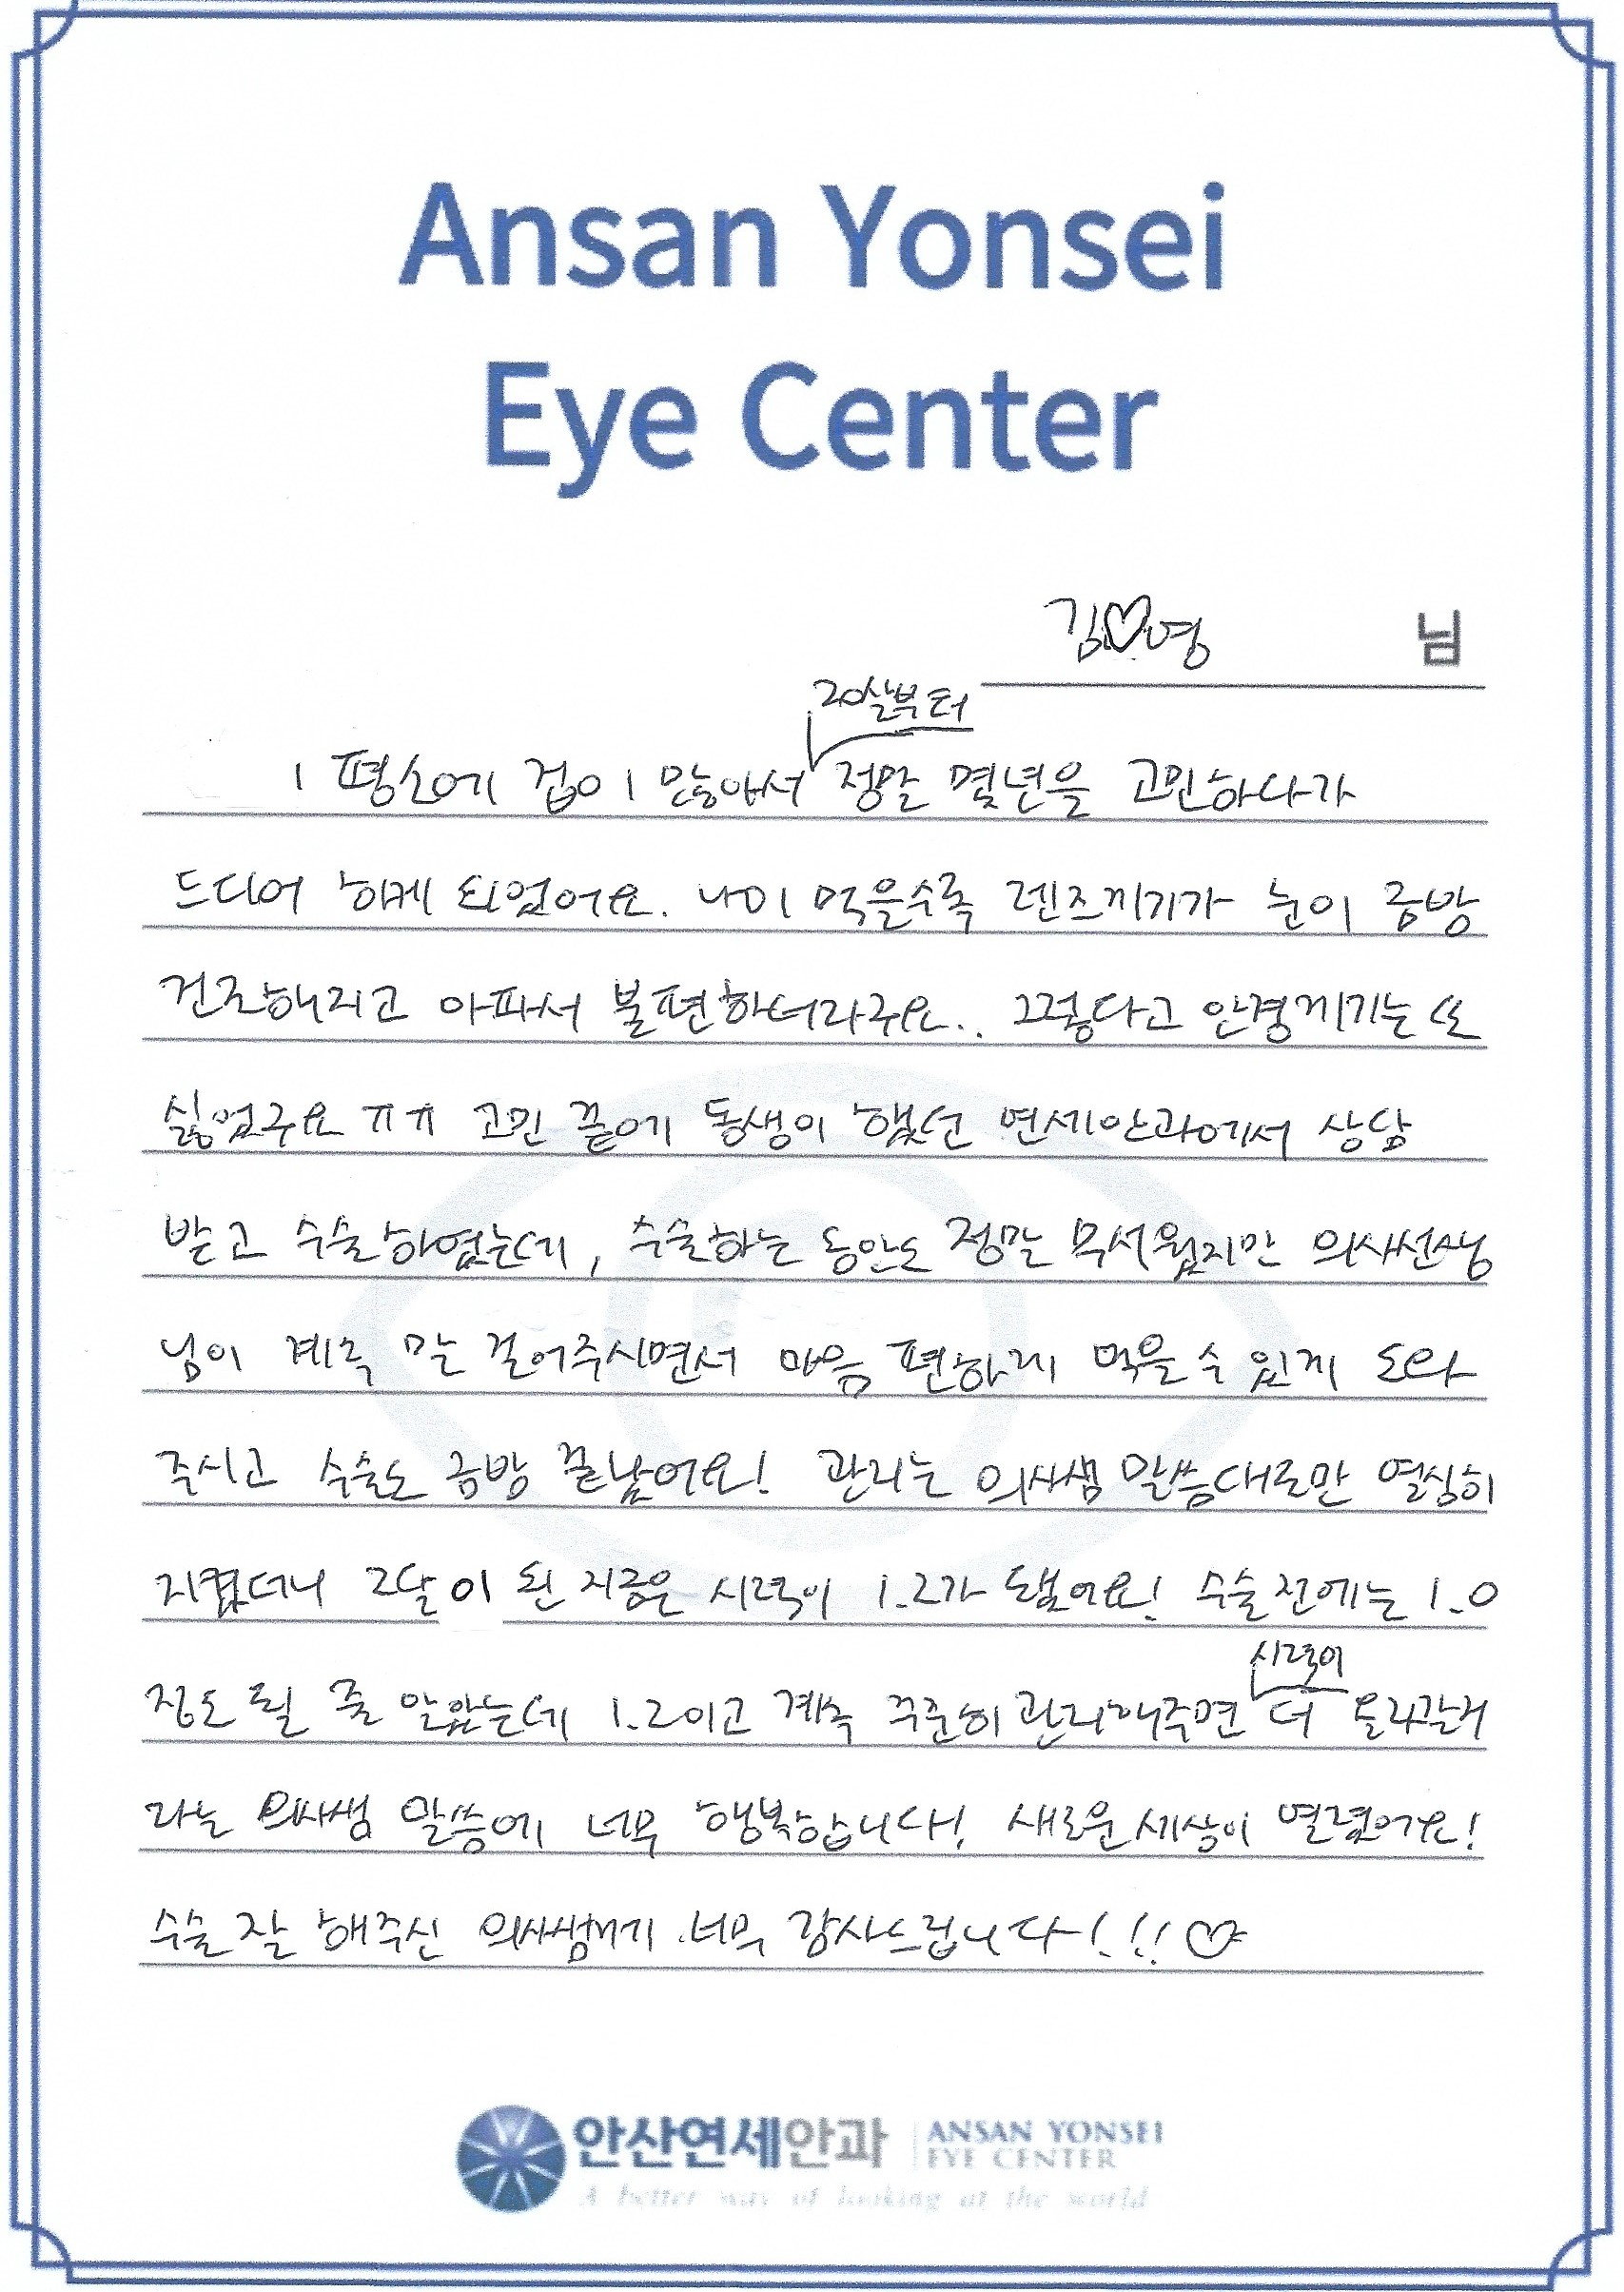 Ansan Yonsei
Eye Center
김♡영 님
20살부터
평소에 겁이 많아서 정말 몇년을 고민하다가
드디어 하게 되었어요. 나이 먹을수록 렌즈끼기가 눈이 금방
건조해지고 아파서 불편하더라구요.. 그렇다고 안경끼기는 또
싫었구요 ㅠㅠ 고민 끝에 동생이 했던 연세안과에서 상담
받고 수술하였는데, 수술하는 동안도 정말 무서웠지만 의사선생
님이 계속 말 걸어주시면서 마음 편하게 먹을 수 있게 도와
주시고 수술도 금방 끝났어요! 관리는 의사쌤 말씀대로만 열심히
지켰더니 2달이 된 지금은 시력이 1.2가 됐어요! 수술 전에는 1.0
시력이
정도 될 줄 알았는데 1.2이고 계속 꾸준히 관리해주면 더 올라갈거
라는 의사쌤 말씀에 너무 행복합니다! 새로운 세상이 열렸어요!
수술 잘 해주신 의사쌤께 너무 감사드립니다!!! ♡
안산연세안과 ANSAN YONSEI
EYE CENTER
A better way of looking at the world